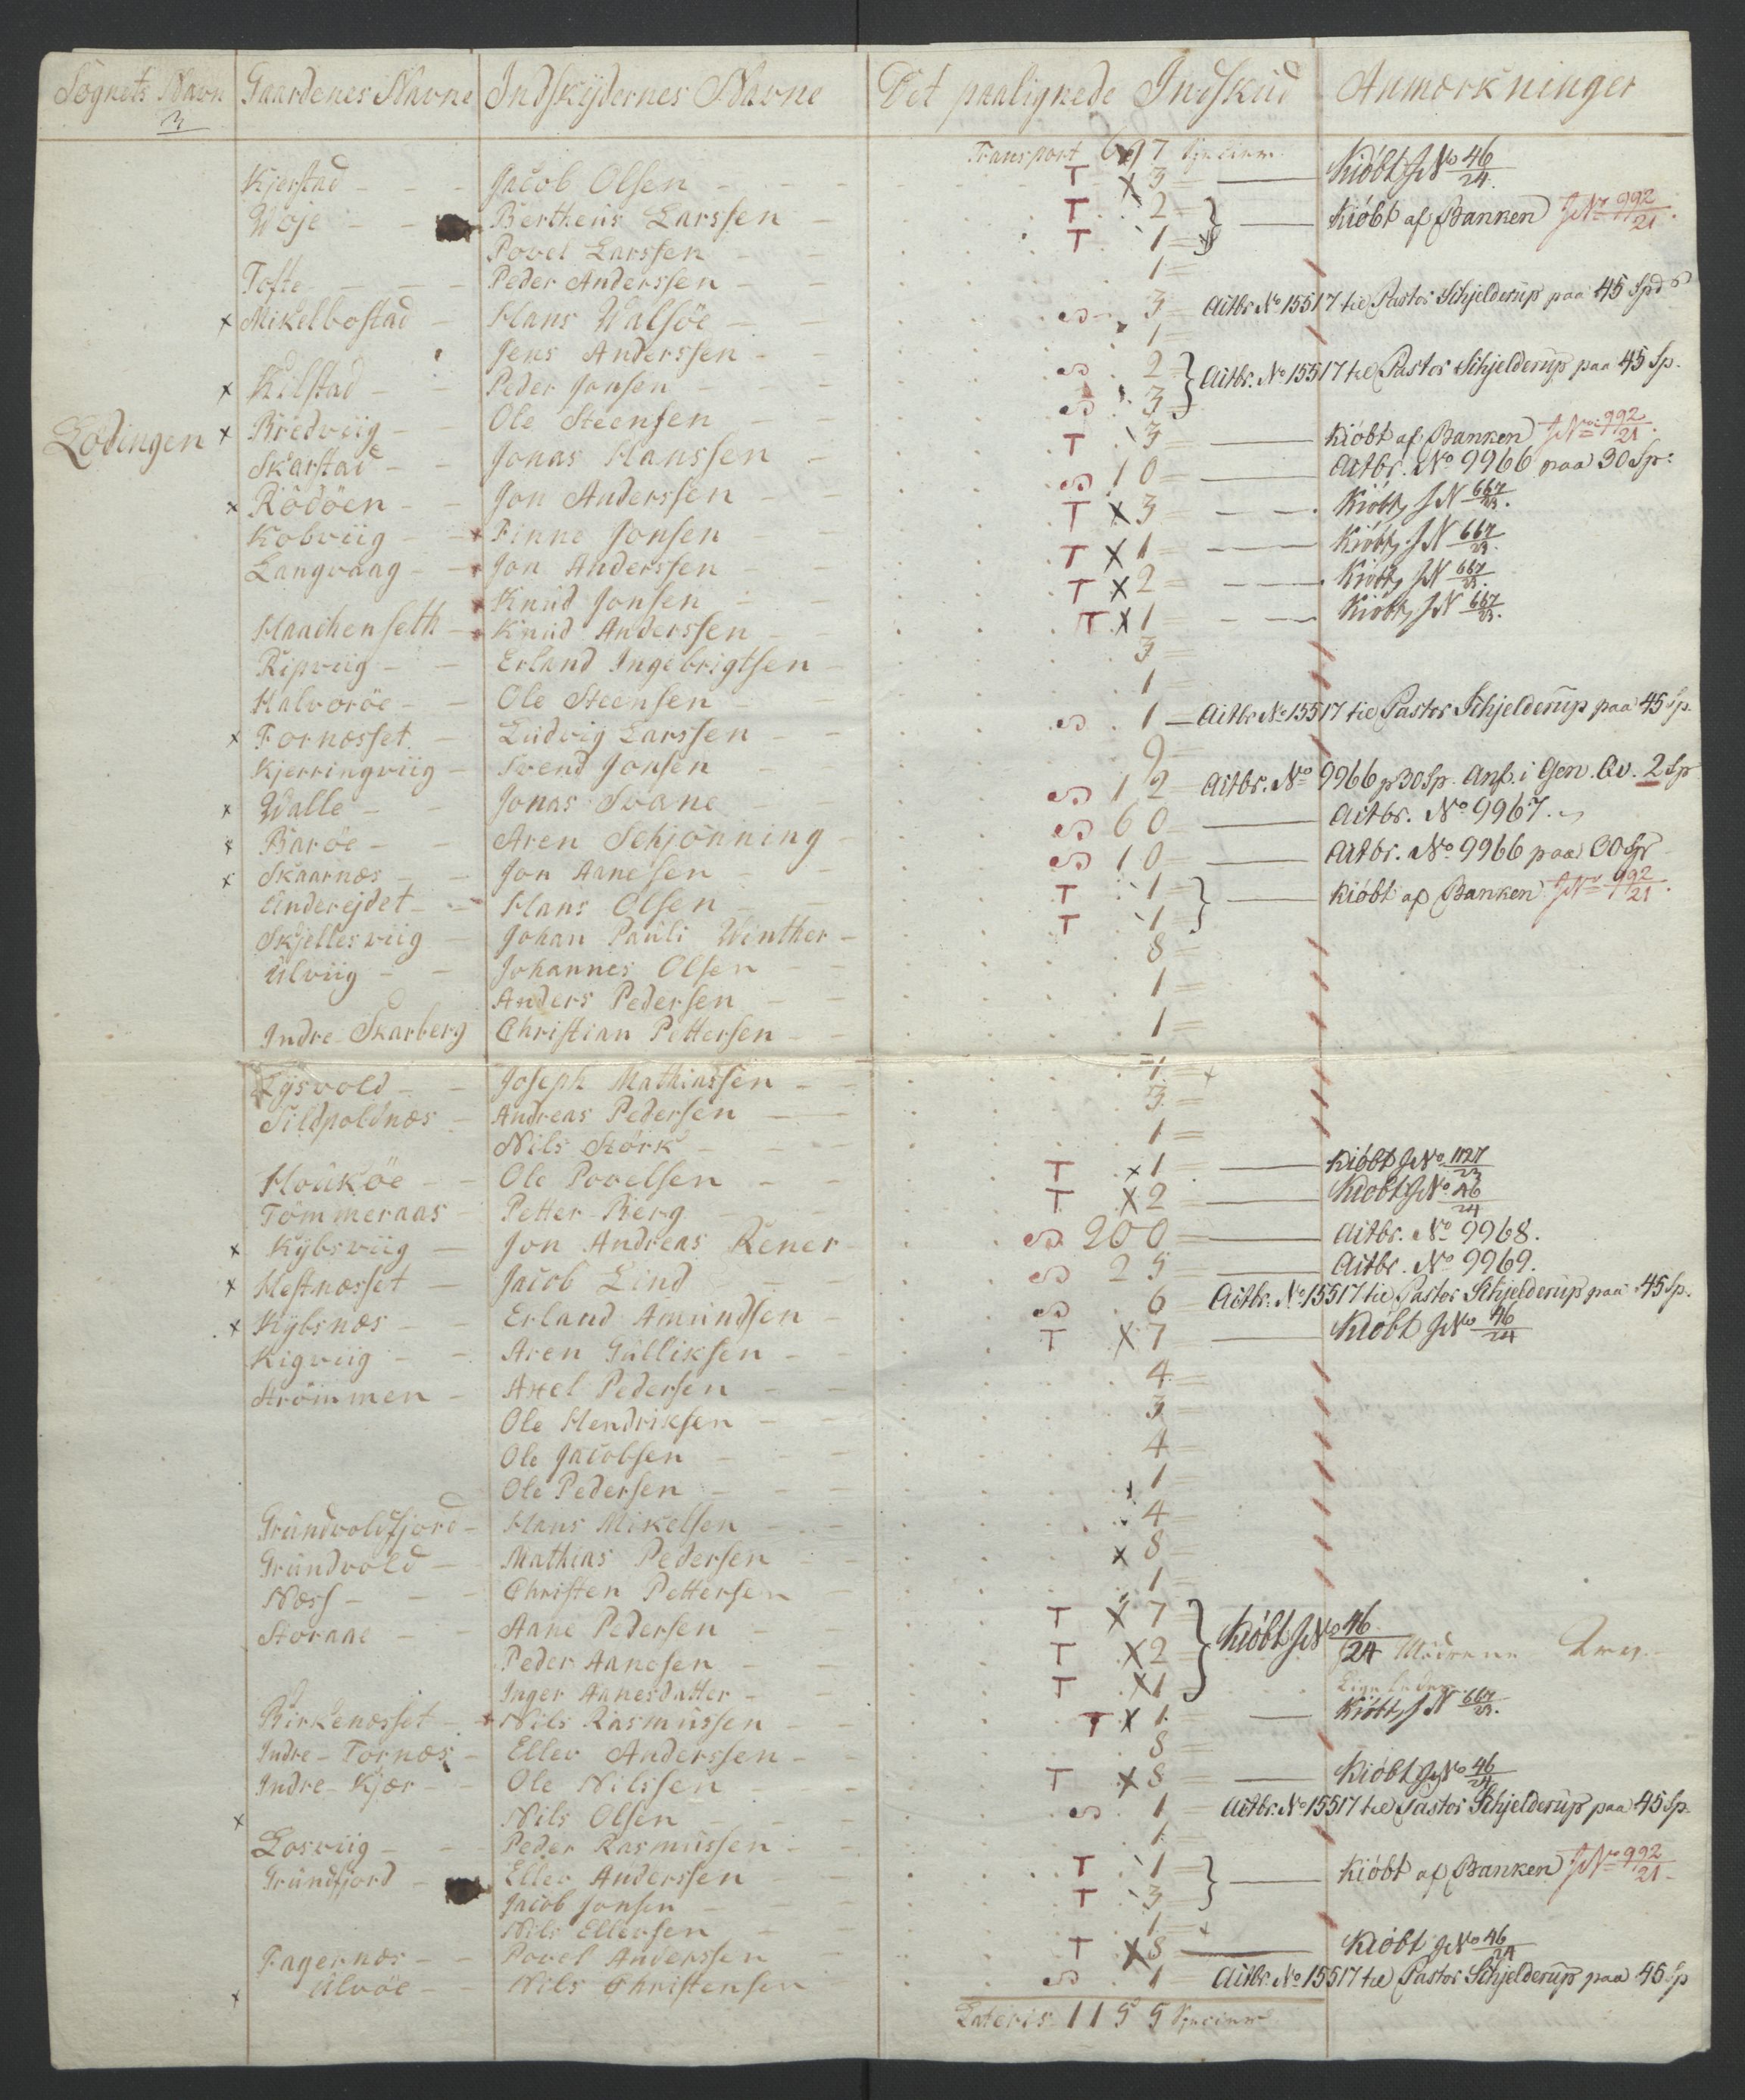 Sognets Navn Gaardenes Navne Indskydernes Navne Det paalignede Indskud Anmærkninger
3
Transport 697 Specier
Kjerstad Jacob Olsen T x 3 Kiöbt JNo 46/24
Woje Bertheus Larssen T 2 } Kiöbt af Banken JNo 992/21
Povel Larssen T 1
Tofte Peder Anderssen 1
x Mikelbostad Hans Walsöe 3 Actbr. No 15517 til Pastor Schjelderup paa 45 Spd
Jens Anderssen 1
x Kilstad Peder Jonsen 2 } Actbr. No 15517 til Pastor Schjelderup paa 45 Sp.
Lödingen x Bredviig Ole Steensen 3
Skarstad Jonas Hanssen T 3 Kiöbt af Banken JNo 992/21
x Rödöen Jon Anderssen 10 Actbr. No 9966 paa 30 Sp:
Kobviig Finne Jonsen T x 3 Kiöbt, JN 667/23.
Langvaag Jon Anderssen T x 1 Kiöbt, JN 667/23.
Knud Jonsen T x 2 Kiöbt, JN 667/23.
Haachenseth Knud Anderssen T x 1 Kiöbt, JN 667/23.
Ripviig Erland Ingebrigtsen 3
Halvoröe Ole Steensen 1
x Fornæsset Ludvig Larssen 1 Actbr. No 15517 til Pastor Schjelderup paa 45 Sp.
Kjerringviig Svend Jonsen 9
x Walle Jonas Svane 12 Actbr. No 9966 p 30 Sp. Anf. i Gen. Qv. 2 Sp
x Baröe Aren Schjönning 60 Actbr. No 9967.
x Skaarnæs Jon Aanesen 10 Actbr. No 9966 paa 30 Sp
Underejdet Hans Olsen T 1 } Kiöbt af Banken JNo 992/21.
Skjellesviig Johan Pauli Winther T 1
Ulviig Johannes Olsen 8
Anders Pedersen 1
Indre Skarberg Christian Pettersen 1
Lysvold Joseph Mathiassen 1
Tildpoldnæs Andreas Pedersen 3
Nils Störk 1
Houköe Ole Povelsen T x 1 Kiöbt JNo 1127/23
Tömmeraas Petter Berg T x 2 Kiöbt JNo 46/24
x Kybsviig Jon Andreas Rener 200 Actbr. No 9968.
x Hestnæsset Jacob Lind 25 Actbr. No 9969.
x Kybsnæs Erland Amundsen 6 Actbr. No 15517 til Pastor Schjelderup paa 45 Sp.
Kigviig Aren Gulliksen T x 7 Kiöbt JNo 46/24
Strömmen Axel Pedersen 4
Ole Hendriksen 3
Ole Jacobsen 4
Ole Pedersen x 1
Grundvoldfjord Hans Mikelsen 4
Grundvold Mathias Pedersen x 8
Næss Christen Pettersen 1
Storaae Aane Pedersen T x 7 } Kiöbt JNo 46/24
Peder Aanesen T x 2
Inger Aanesdatter T x 1
Birkenæsset Nils Rasmussen T x 1 Kiöbt, JN 667/23.
Indre Tornæs Eller Anderssen 8
Indre Kjær Ole Nilssen T x 8 Kiöbt JNo 46/24
x Nils Olsen 1 Actbr. No 15517 til Pastor Schjelderup paa 45 Sp.
Losviig Peder Rasmussen 1
Grundfjord Eller Anderssen T 1 } Kiöbt af Banken JNo 992/21
Jacob Jonsen T 3
Nils Ellersen 1
Fagernæs Povel Anderssen T x 8 Kiöbt JNo 46/24
x Ulvöe Nils Christensen 1 Actbr. No 15517 til Pastor Schjelderup paa 45 Sp
Lateris 1155 Specier